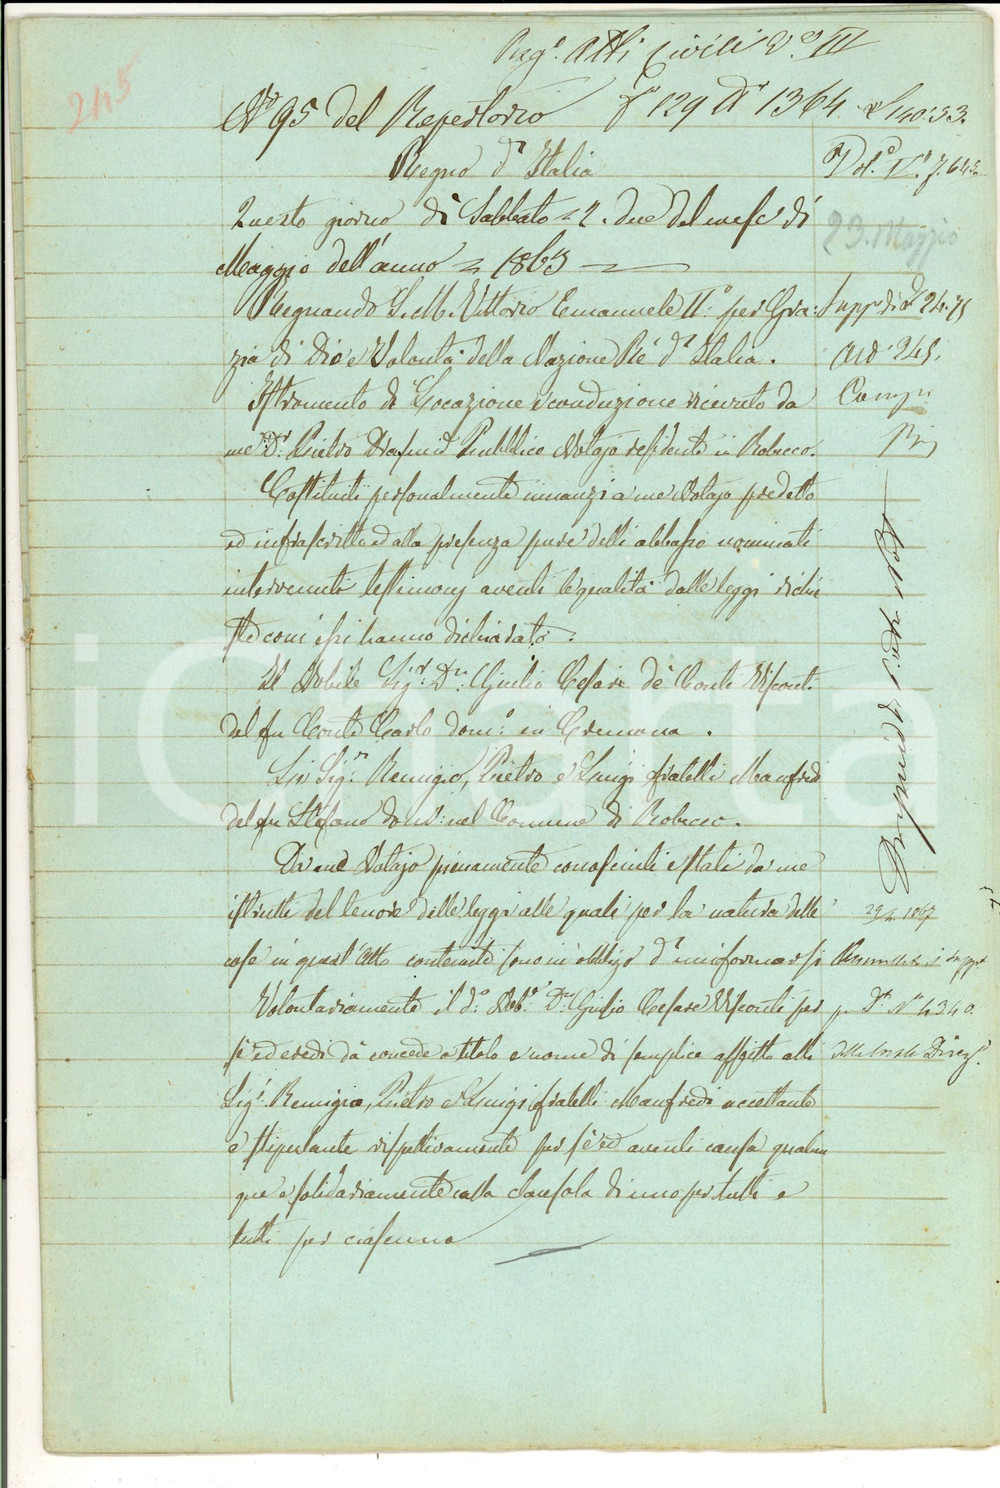 Reg.° Atti Civili V.° III
245
N.° 95 del Repertorio f 129 N.° 1364 £ 140:33.
Regno d'Italia
Questo giorno di Sabbato = 2. due del mese di
23. Maggio
Maggio dell'anno = 1863
Regnando S. M. Vittorio Emanuele II.° per Gra:
zia di Dio e Volontà della Nazione Re d'Italia.
Ard. 245.
Istromento di Locazione e conduzione ricevuto da
me D.r Pietro Pubblico Notajo residente in Robecco.
Costituiti personalmente innanzi a me Notajo predetto
ed infrascritto ed alla presenza pure delli abbasso nominati
intervenuti testimonj aventi le qualità dalle leggi richie
ste com'essi hanno dichiarato:
Il Nobile Sig.r D.n Giulio Cesare de' Conti Visconti
del fu Conte Carlo dom.° in Cremona.
Li Sig.ri Remigio, Pietro e Luigi fratelli Manfredi
del fu Stefano dom.ti nel Comune di Robecco.
Da me Notajo pienamente conosciuti e stati da me
istrutti del tenore delle leggi alle quali per la natura delle
29 1867
cose in quest'Atto contenute sono in obbligo d'uniformarsi
Volontariamente il d.° Nob.e D.n Giulio Cesare Visconti per
N.° 4340.
sè ed eredi dà concede a titolo e nome di semplice affitto alli
della Direz.e
Sig.ri Remigio, Pietro e Luigi fratelli Manfredi accettante
e stipulante rispettivamente per sè ed aventi causa qualun
que e solidariamente colla clausola di uno per tutti e
tutti per ciascuno
iCharta